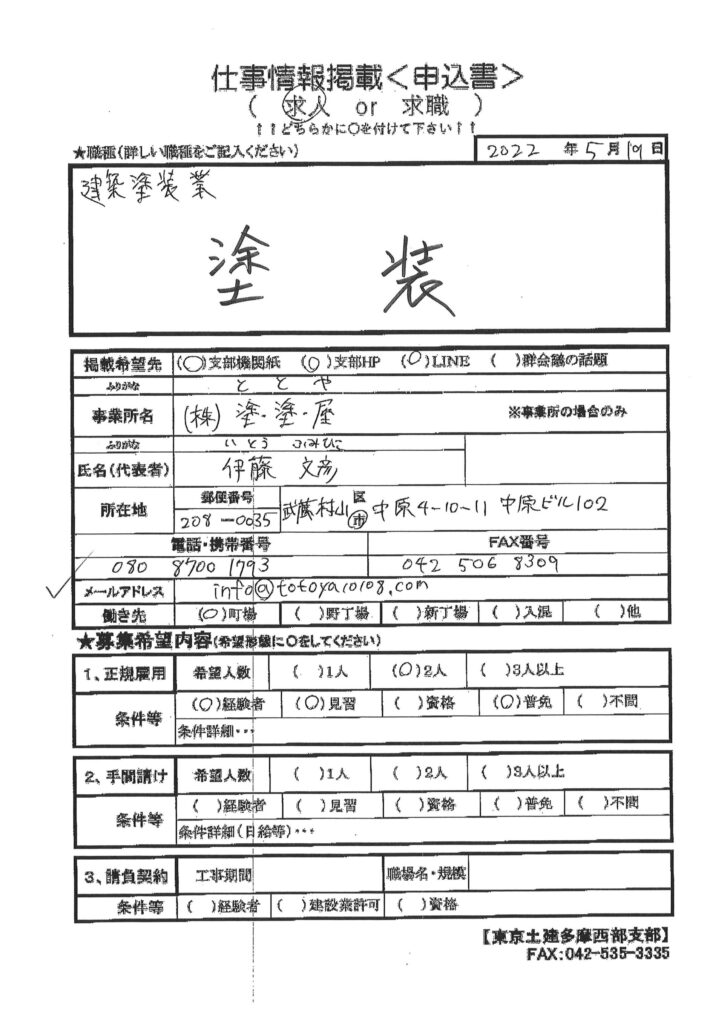 仕事情報掲載＜申込書＞
( 求人 or 求職 )
↑↑どちらかに○を付けて下さい↑↑
★職種(詳しい職種をご記入ください)
2022 年 5 月 19 日
建築塗装業
塗 装
掲載希望先 (○)支部機関紙 (○)支部HP (○)LINE ( )群会議の話題
ふりがな ととや
事業所名 (株) 塗・塗・屋 ※事業所の場合のみ
ふりがな いとう ふみひこ
氏名(代表者) 伊藤 文彦
所在地 郵便番号 208-0035 武蔵村山 区 市 中原4-10-11 中原ビル102
電話・携帯番号 FAX番号
080 8700 1793 042 506 8309
メールアドレス info@totoya0108.com
働き先 (○)町場 ( )野丁場 ( )新丁場 ( )入混 ( )他
★募集希望内容(希望形態に○をしてください)
1、正規雇用 希望人数 ( )1人 (○)2人 ( )3人以上
条件等 (○)経験者 (○)見習 ( )資格 (○)普免 ( )不問
条件詳細・・・
2、手間請け 希望人数 ( )1人 ( )2人 ( )3人以上
条件等 ( )経験者 ( )見習 ( )資格 ( )普免 ( )不問
条件詳細(日給等)・・・
3、請負契約 工事期間 職場名・規模
条件等 ( )経験者 ( )建設業許可 ( )資格
【東京土建多摩西部支部】
FAX:042-535-3335